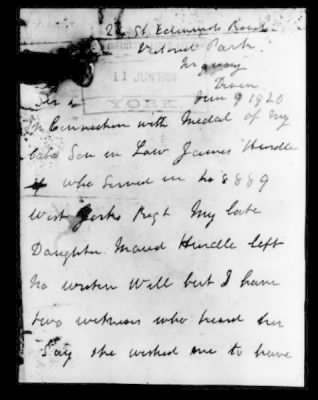 22 St Edmunds Road
Victoria Park
Torquay
Devon
INFANTRY
11 JUN 1920
YORK
June 9 1920
Sir
In Connection with Medal of My
late Son in Law James Hurdle
who served in no 8889
West Yorks Regt My late
Daughter Maud Hurdle left
no written Will but I have
two witness who heard her
Say she wished me to have